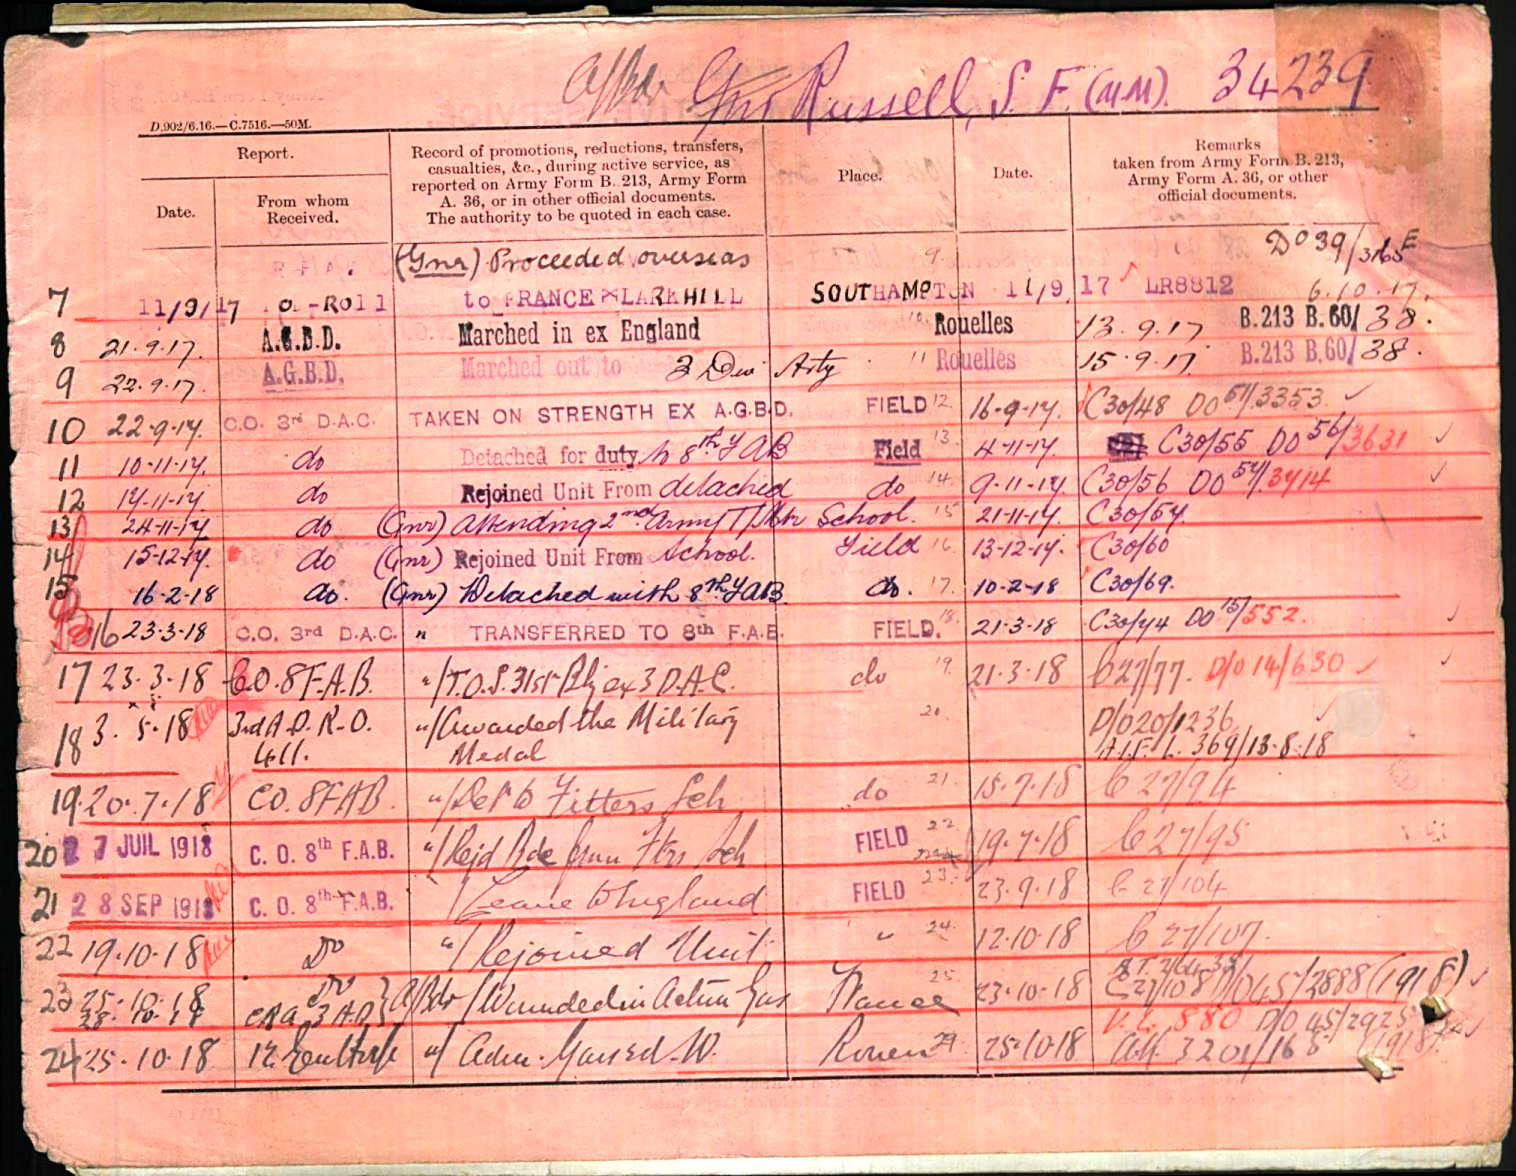 A/Bdr. Gnr Russell, S. F. (M.M). 34239
D.902/6.16.—C.7516.—50M.
Report.
Date.
From whom
Received.
Record of promotions, reductions, transfers,
casualties, &c., during active service, as
reported on Army Form B. 213, Army Form
A. 36, or in other official documents.
The authority to be quoted in each case.
Place.
Date.
Remarks
taken from Army Form B. 213,
Army Form A. 36, or other
official documents.
(Gnr) Proceeded overseas DO 39/3165E
7 11/9/17 O-Roll to FRANCE LARKHILL SOUTHAMPTON 11/9.17 LR8812 6.10.17.
8 21.9.17. A.G.B.D. Marched in ex England 10 Rouelles 13.9.17 B.213 B.60/38.
9 22.9.17. A.G.B.D. Marched out to 3 Div Arty 11 Rouelles 15.9.17. B.213 B.60/38.
10 22.9.17. C.O. 3rd D.A.C. TAKEN ON STRENGTH EX A.G.B.D. FIELD 12. 16-9-17. C30/48 DO 51/3353
11 10-11-17. do Detached for duty to 8th FAB Field 13. 4-11-17. C30/55 DO 56/3631
12 17-11-17. do Rejoined Unit From detached do 14. 9-11-17. C30/56 DO 57/3714
13 24-11-17 do (Gnr) Attending 2nd Army T/Mtr School. 15 21-11-17. C30/57.
14 15-12-17. do (Gnr) Rejoined Unit From School. Field 16. 13-12-17. C30/60
15 16-2-18 do. (Gnr) Detached with 8th FAB do. 17. 10-2-18 C30/69.
16 23-3-18 C.O. 3rd D.A.C. " TRANSFERRED TO 8th F.A.B. FIELD. 18. 21-3-18 C30/74 DO 15/552.
17 23.3.18 C.O. 8 F.A.B. "/T.O.S. 31st Bty ex 3 D.A.C. do 19. 21-3-18 C27/77. D/O 14/630
18 3.5.18 3rd A.D.R.O. "/Awarded the Military 20. D/O 20/1236
411. Medal A.I.F. L. 369/13.8.18
19 20.7.18 CO. 8FAB. "/Det to Fitters Sch do 21. 15.7.18 C27/94
20 27 JUIL 1918 C. O. 8th F.A.B. "/Rejd Bde from Ftrs Sch FIELD 22. 19.7.18 C27/95
21 28 SEP 1918 C. O. 8th F.A.B. /Leave to England FIELD 23. 23.9.18 C27/104
22 19.10.18 Do "/Rejoined Unit " 24. 12.10.18 C27/107.
23 25.10.18 Do A/Bdr /Wounded in Action Gas France 25 23.10.18 C27/108 DO 45/2888 (1918)
28.10.18 CRA 3 AD V.L. 880 D/O 45/2925
24 25.10.18 "/ Adm. Gassed. W. Rouen 25.10.18 3201/168 (1918)